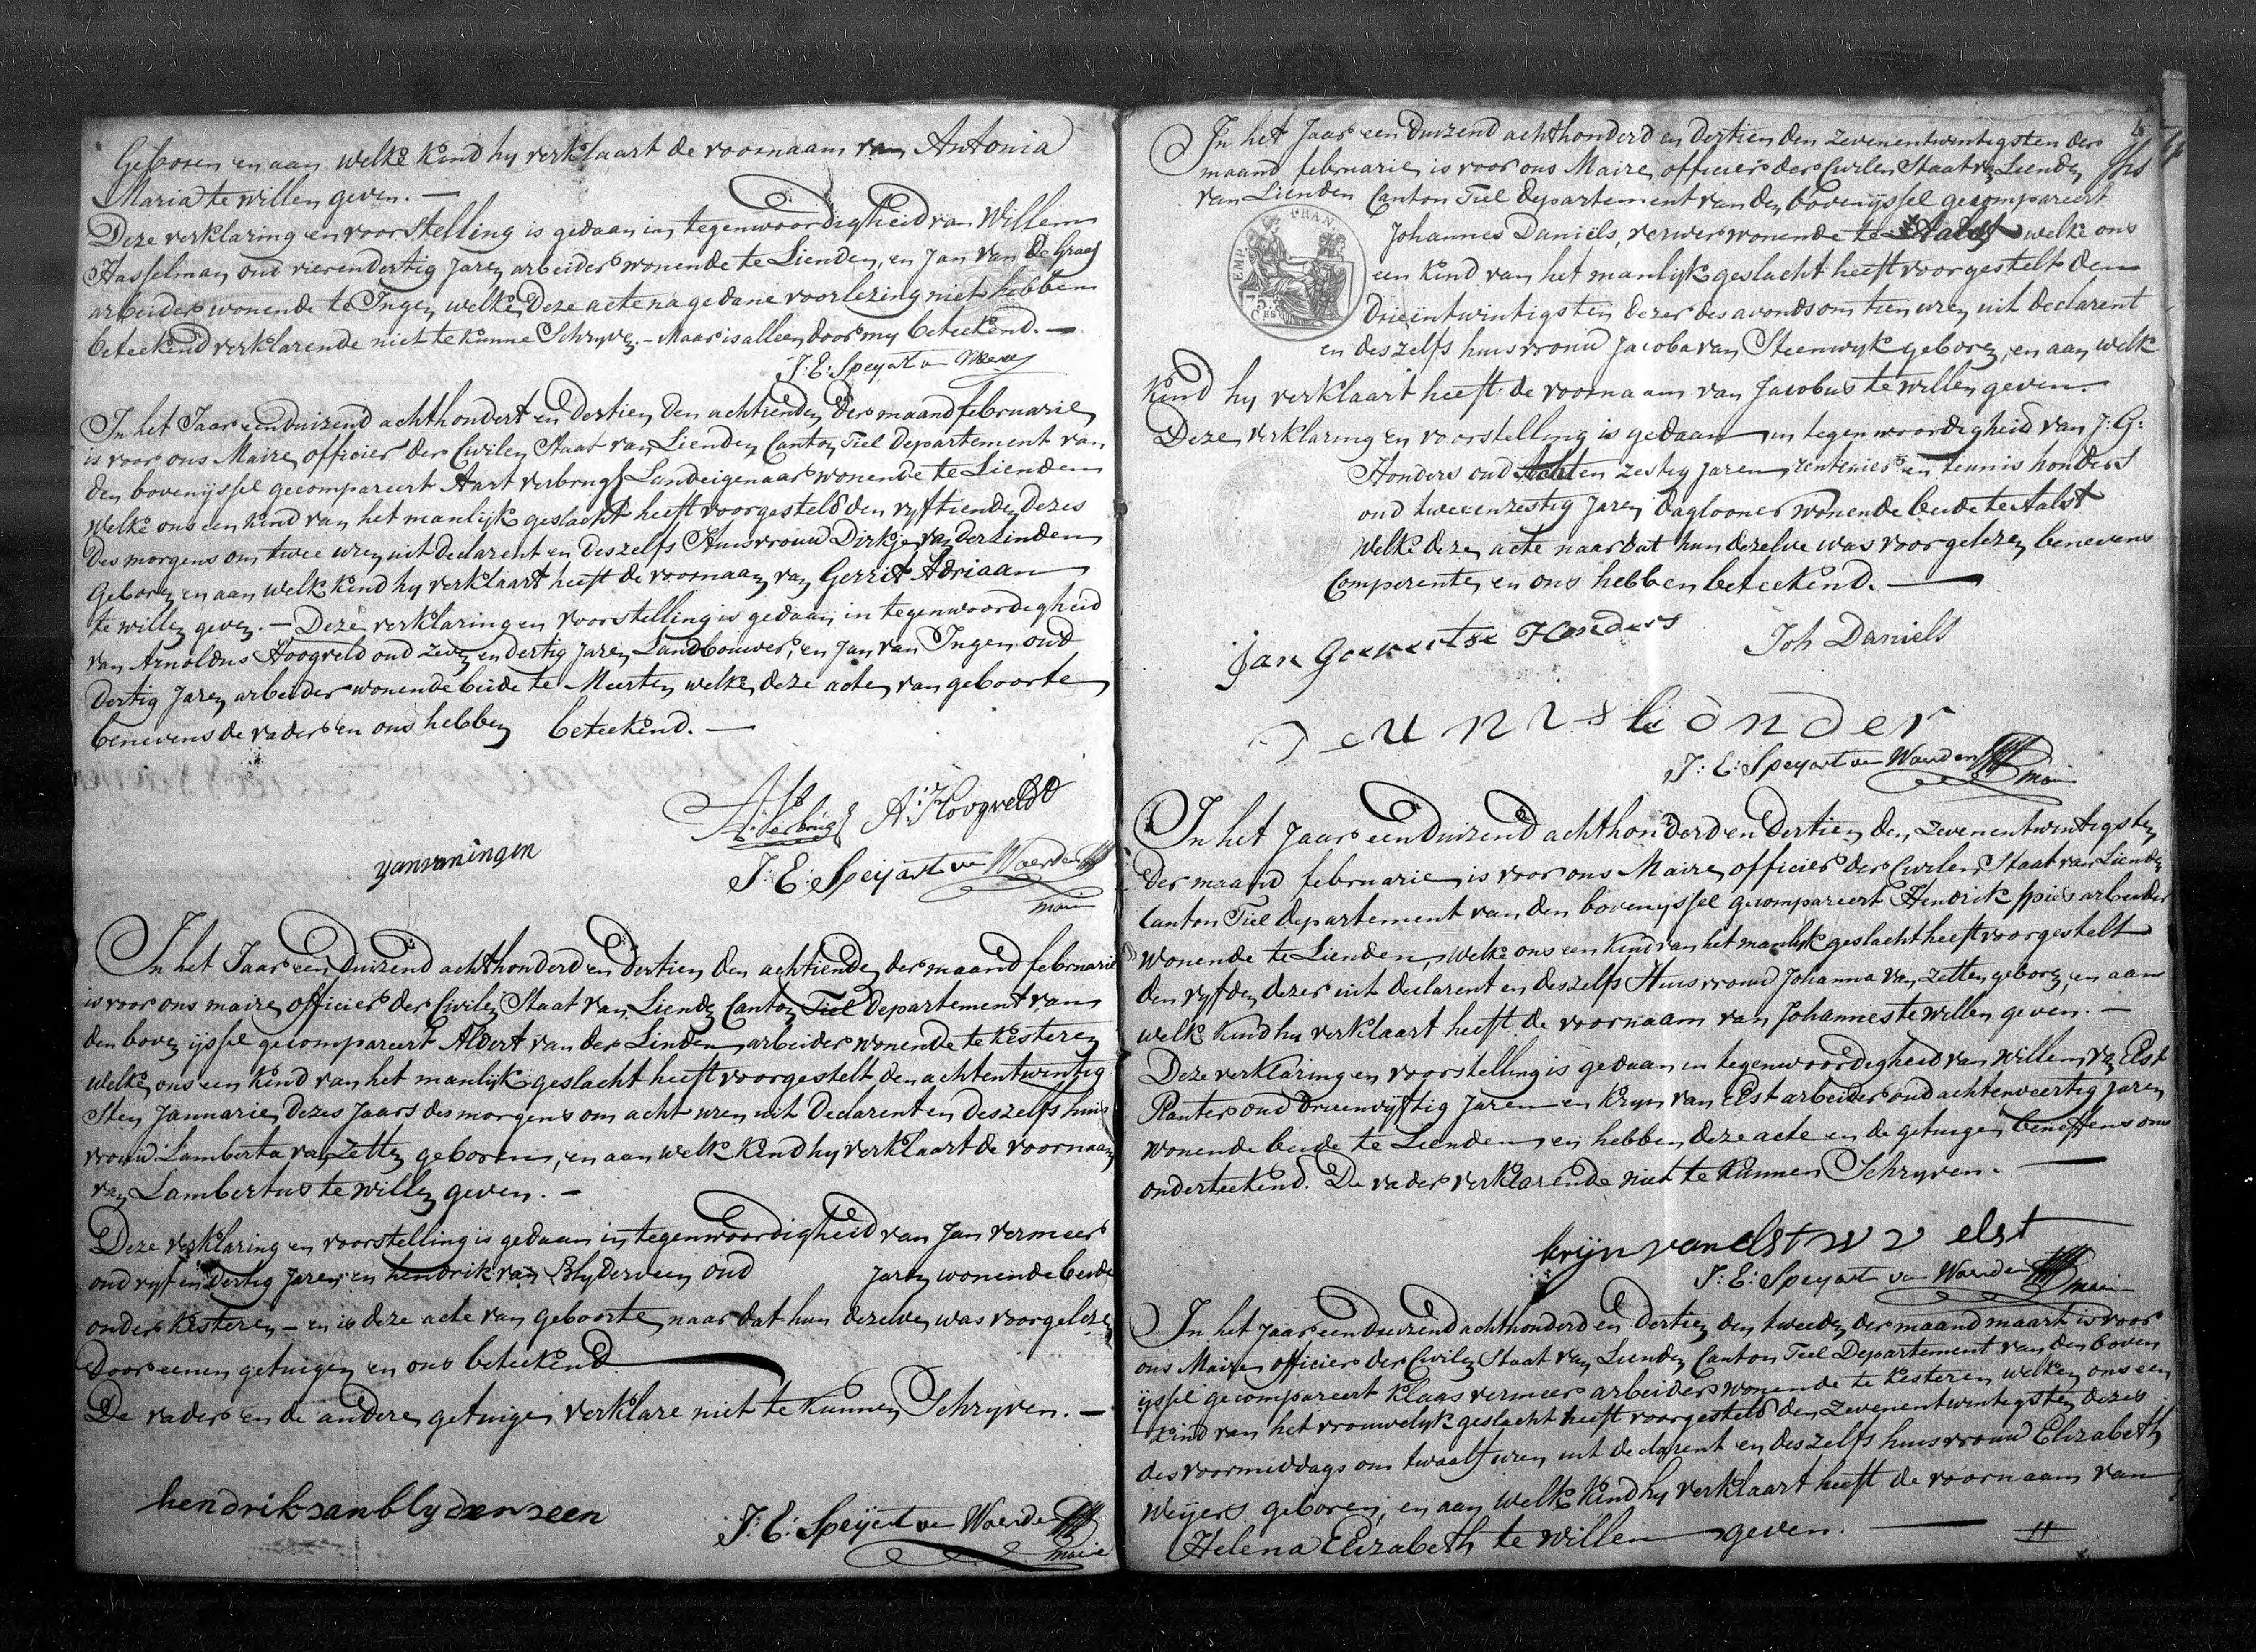 Geboren en aan welke kind hy verklaart de voornaam van Antonia
Maria te willen geven. —
Deze verklaring en voorstelling is gedaan in tegenwoordigheid van Willem
Hasselman oud vierendertig Jaren arbeider wonende te Lienden, en Jan van de Graaf
arbeider wonende te Ingen welke Deze acte na gedane voorlezing niet hebben
beteekend verklarende niet te kunne Schryven. – Maar is alleen door my beteekend. —
J: E: Speyart v Woerden
In het Jaar een duizend achthondert en dertien den achtienden der maand februarie
is voor ons Maire officier der Civilen Staat van Lienden Canton Tiel departement van
den bovenyssel gecompareert Aart verbrugh Landeigenaar wonende te Lienden
Welke ons een kind van het manlijk geslacht heeft voorgesteld den vyftienden dezes
des morgens om twee uren uit declarent en deszelfs Huisvrouw Dirkje van der Linden
Geboren en aan welk kind hy verklaart heeft de voornaam van Gerrit Adriaan
te willen geven. — Deze verklaring en voorstelling is gedaan in tegenwoordigheid
van Arnoldus Hoogveld oud zeven en dertig Jaren Landbouwer, en Jan van Ingen oud
dertig Jaren arbeider wonende beide te Meerten welke deze acten van geboorte
benevens de vader en ons hebben beteekend. —
A: Verbrugh A: Hoogveldt
yanvaningen
J: E: Speijart van Woerden
maire
In het Jaar een duizend achthonderd en dertien den achtiende der maand februarie
is voor ons maire officier der Civilen Staat van Lienden Canton Tiel departement van
den boven ijssel gecompareert Aldert van der Linden arbeider wonende te Kesteren
welke ons een kind van het manlijk geslacht heeft voorgestelt den achtentwintig
Sten Januarie dezes Jaars des morgens om acht uren uit Declarent en deszelfs huis
vrouw Lamberta van Zetten geboren, en aan welk kind hy verklaart de voornaam
van Lambertus te willen geven. —
Deze verklaring en voorstelling is gedaan in tegenwoordigheid van Jan vermeer
oud vyf en dertig Jaren en hendrik van Blyderveen oud Jaren wonende beide
onder Kesteren – en is deze acte van geboorte naar dat hun dezelven was voorgelezen
door eenen getuigen en ons beteekend
De vader en de andere getuigen verklare niet te kunnen Schryven. —
hendrik van blyderveen
J: E: Speyart van Woerden
maire
In het Jaar een duizend achthonderd en dertien den zevenentwintigsten der
maand februarie is voor ons Maire officier der Civilen Staat van Lienden
van Lienden Canton Tiel departement van den bovenyssel gecompareert
Johannes Daniels, verwer wonende te Aalst welke ons
een kind van het manlyk geslacht heeft voorgestelt den
Drieentwintigsten dezer des avonds om tien uren uit declarent
en deszelfs huisvrouw Jacoba van Steenwyk geboren, en aan welk
kind hy verklaart heeft de voornaam van Jacobus te willen geven.
Deze verklaring en voorstelling is gedaan in tegenwoordigheid van J: G:
Honders oud Achten zestig Jaren rentenier en teunis honders
oud tweeenzestig Jaren daglooner wonende beide te Aalst
welke deze acte naar dat hun dezelve was voorgelezen benevens
Comparenten en ons hebben beteekend. —
Jan Goevertse Honders
Joh Daniels
Teunis honder
J: E: Speyart van Woerden
maire
In het Jaar een duizend achthonderd en dertien den zevenentwintigsten
der maand februarie is voor ons Maire officier der Civilen Staat van Lienden
Canton Tiel departement van den bovenyssel gecompareert Hendrik Spies arbeider
wonende te Lienden, welke ons een kind van het manlyk geslacht heeft voorgestelt
den vyfden dezer uit declarent en deszelfs Huisvrouw Johanna van Zetten geboren, en aan
welk kind hy verklaart heeft de voornaam van Johannes te willen geven. —
Deze verklaring en voorstelling is gedaan in tegenwoordigheid van Willem van Elst
Planter oud drieenvyftig Jaren en Kryn van Elst arbeider oud achtenveertig Jaren
wonende beide te Lienden en hebben deze acte en de getuigen beneffens ons
onderteekend. De vader verklarende niet te kunnen Schryven. —
krijn van elst w v elst
J: E: Speyart van Woerden
maire
In het Jaar een duizend achthonderd en dertien den tweeden der maand maart is voor
ons Maire officier der Civilen Staat van Lienden Canton Tiel Departement van den boven
ijssel gecompareert klaas vermeer arbeider wonende te kesteren welken ons een
kind van het vrouwelyk geslacht heeft voorgesteld den zevenentwintigsten dezes
des voormiddags om twaalf uren uit declarent en deszelfs huisvrouw Elizabeth
Weijers geboren, en aan welk kind hy verklaart heeft de voornaam van
Helena Elizabeth te willen geven. —